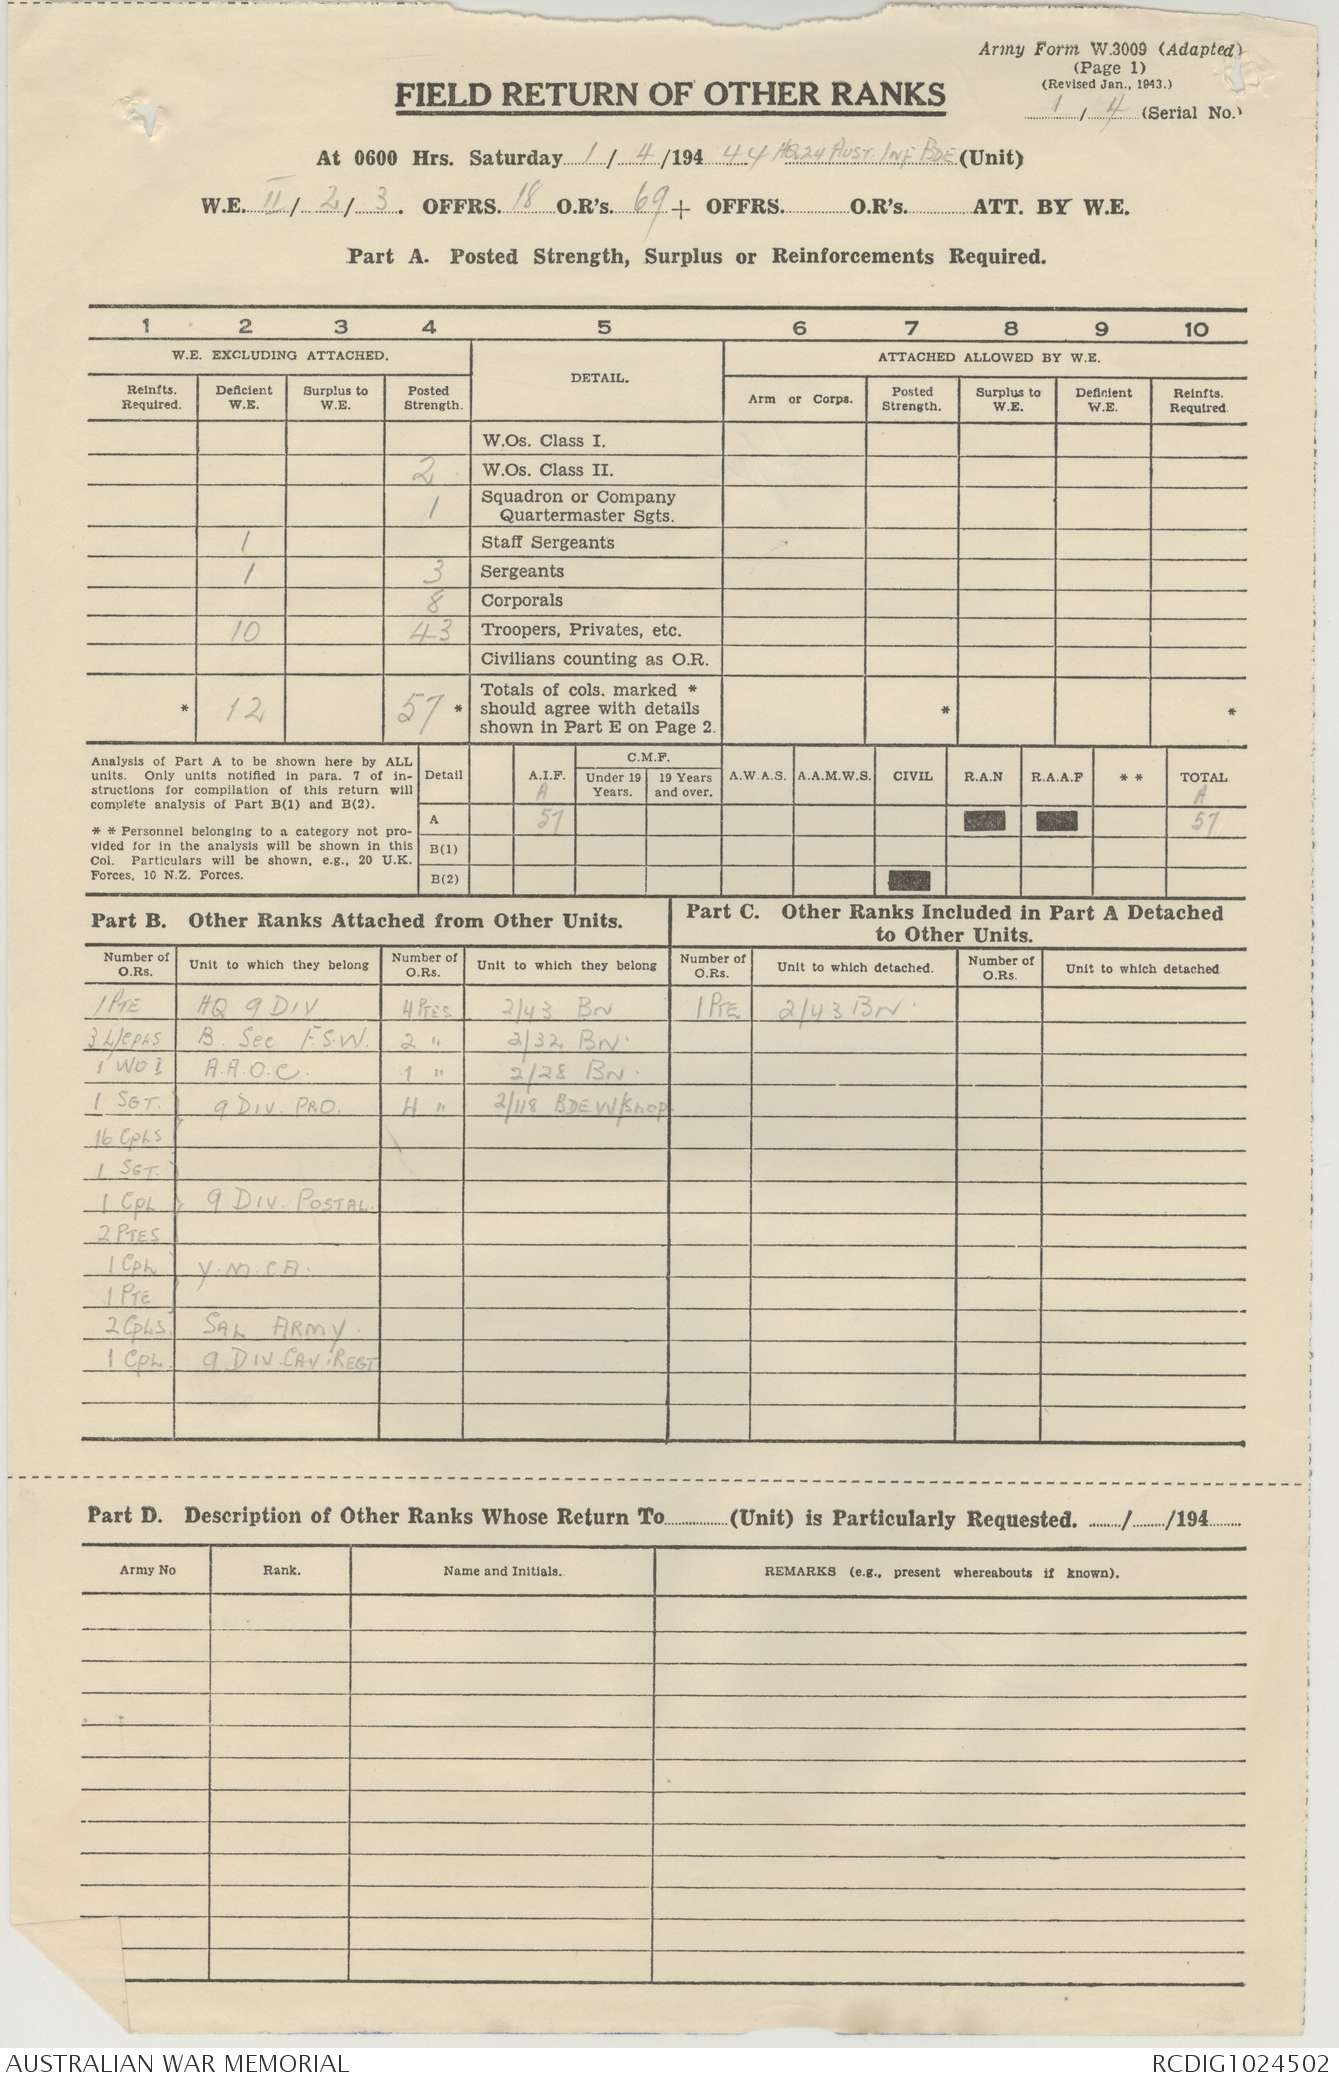 Army Form W.3009 (Adapted)
(Page 1)
(Revised Jan., 1943.)
1 / 4 (Serial No.)
FIELD RETURN OF OTHER RANKS
At 0600 Hrs. Saturday 1 / 4 /194 44 HQ 24 AUST. INF BDE (Unit)
W.E. II / 2 / 3 . OFFRS. 18 O.R's. 69 + OFFRS. O.R's. ATT. BY W.E.
Part A. Posted Strength, Surplus or Reinforcements Required.
1 2 3 4 5 6 7 8 9 10
W.E. EXCLUDING ATTACHED. DETAIL. ATTACHED ALLOWED BY W.E.
Reinfts. Required. Deficient W.E. Surplus to W.E. Posted Strength. Arm or Corps. Posted Strength. Surplus to W.E. Deficient W.E. Reinfts. Required.
W.Os. Class I.
2 W.Os. Class II.
1 Squadron or Company Quartermaster Sgts.
1 Staff Sergeants
1 3 Sergeants
8 Corporals
10 43 Troopers, Privates, etc.
Civilians counting as O.R.
* 12 57 * Totals of cols. marked * should agree with details shown in Part E on Page 2. * *
Analysis of Part A to be shown here by ALL
units. Only units notified in para. 7 of in-
structions for compilation of this return will
complete analysis of Part B(1) and B(2).
* * Personnel belonging to a category not pro-
vided for in the analysis will be shown in this
Col. Particulars will be shown, e.g., 20 U.K.
Forces, 10 N.Z. Forces.
Detail A.I.F. C.M.F. Under 19 Years. 19 Years and over. A.W.A.S. A.A.M.W.S. CIVIL R.A.N R.A.A.F * * TOTAL
A A
A 57 57
B(1)
B(2)
Part B. Other Ranks Attached from Other Units.
Part C. Other Ranks Included in Part A Detached
to Other Units.
Number of O.Rs. Unit to which they belong Number of O.Rs. Unit to which they belong Number of O.Rs. Unit to which detached. Number of O.Rs. Unit to which detached
1 PTE HQ 9 DIV 4 PTES 2/43 BN 1 PTE 2/43 BN.
3 L/CPLS B. Sec F.S.W. 2 " 2/32 BN.
1 WO I A.A.O.C. 1 " 2/28 BN.
1 SGT. 9 DIV. PRO. 4 " 2/118 BDE W/SHOP
16 CPLS
1 SGT.
1 CPL 9 DIV. POSTAL.
2 PTES
1 CPL Y.M.C.A.
1 PTE
2 CPLS. SAL ARMY.
1 CPL. 9 DIV. CAV. REGT
Part D. Description of Other Ranks Whose Return To (Unit) is Particularly Requested. / /194
Army No Rank. Name and Initials. REMARKS (e.g., present whereabouts if known).
AUSTRALIAN WAR MEMORIAL RCDIG1024502